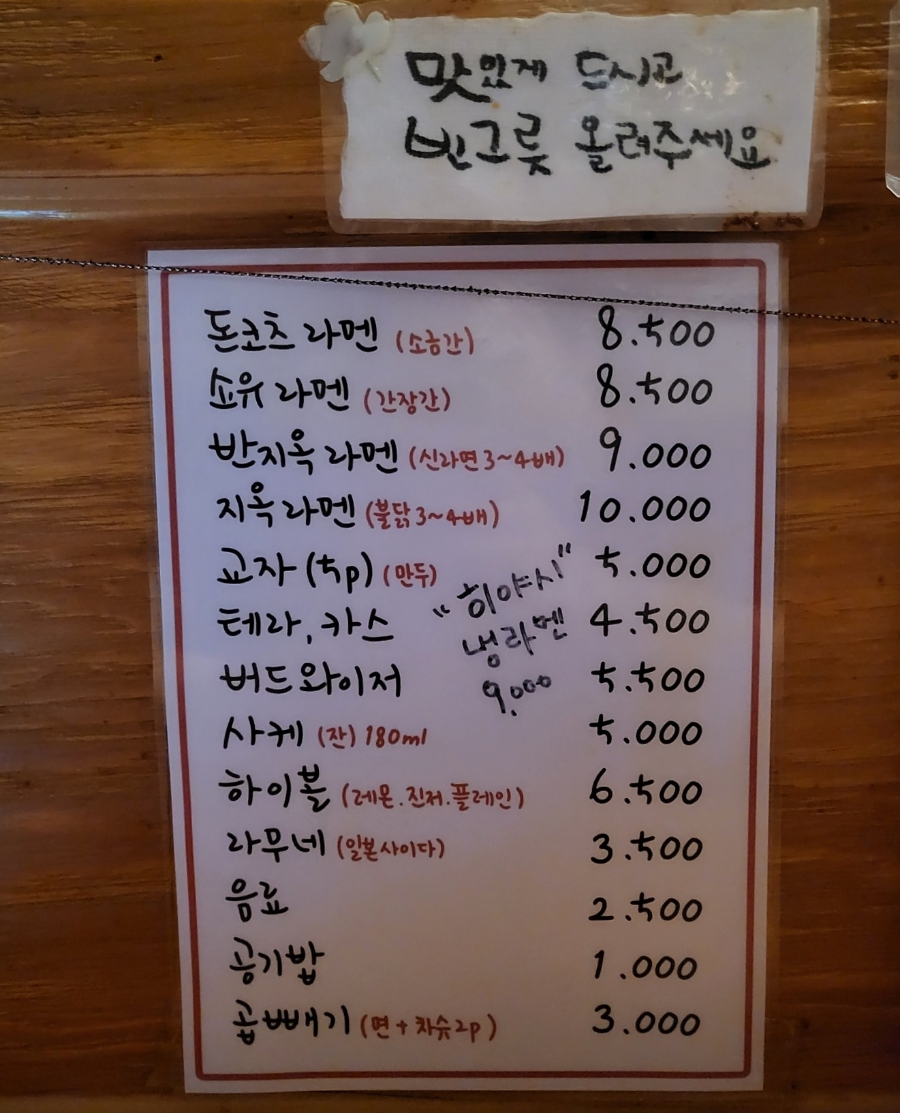 맛있게 드시고
빈그릇 올려주세요
돈코츠 라멘 (소금간) 8.500
쇼유 라멘 (간장간) 8.500
반지옥 라멘 (신라면 3~4배) 9.000
지옥 라멘 (불닭 3~4배) 10.000
교자 (5p) (만두) 5.000
테라, 카스 4.500
"히야시"
냉라멘
9.000
버드와이저 5.500
사케 (잔) 180ml 5.000
하이볼 (레몬.진저.플레인) 6.500
라무네 (일본사이다) 3.500
음료 2.500
공기밥 1.000
곱빼기 (면+차슈2p) 3.000